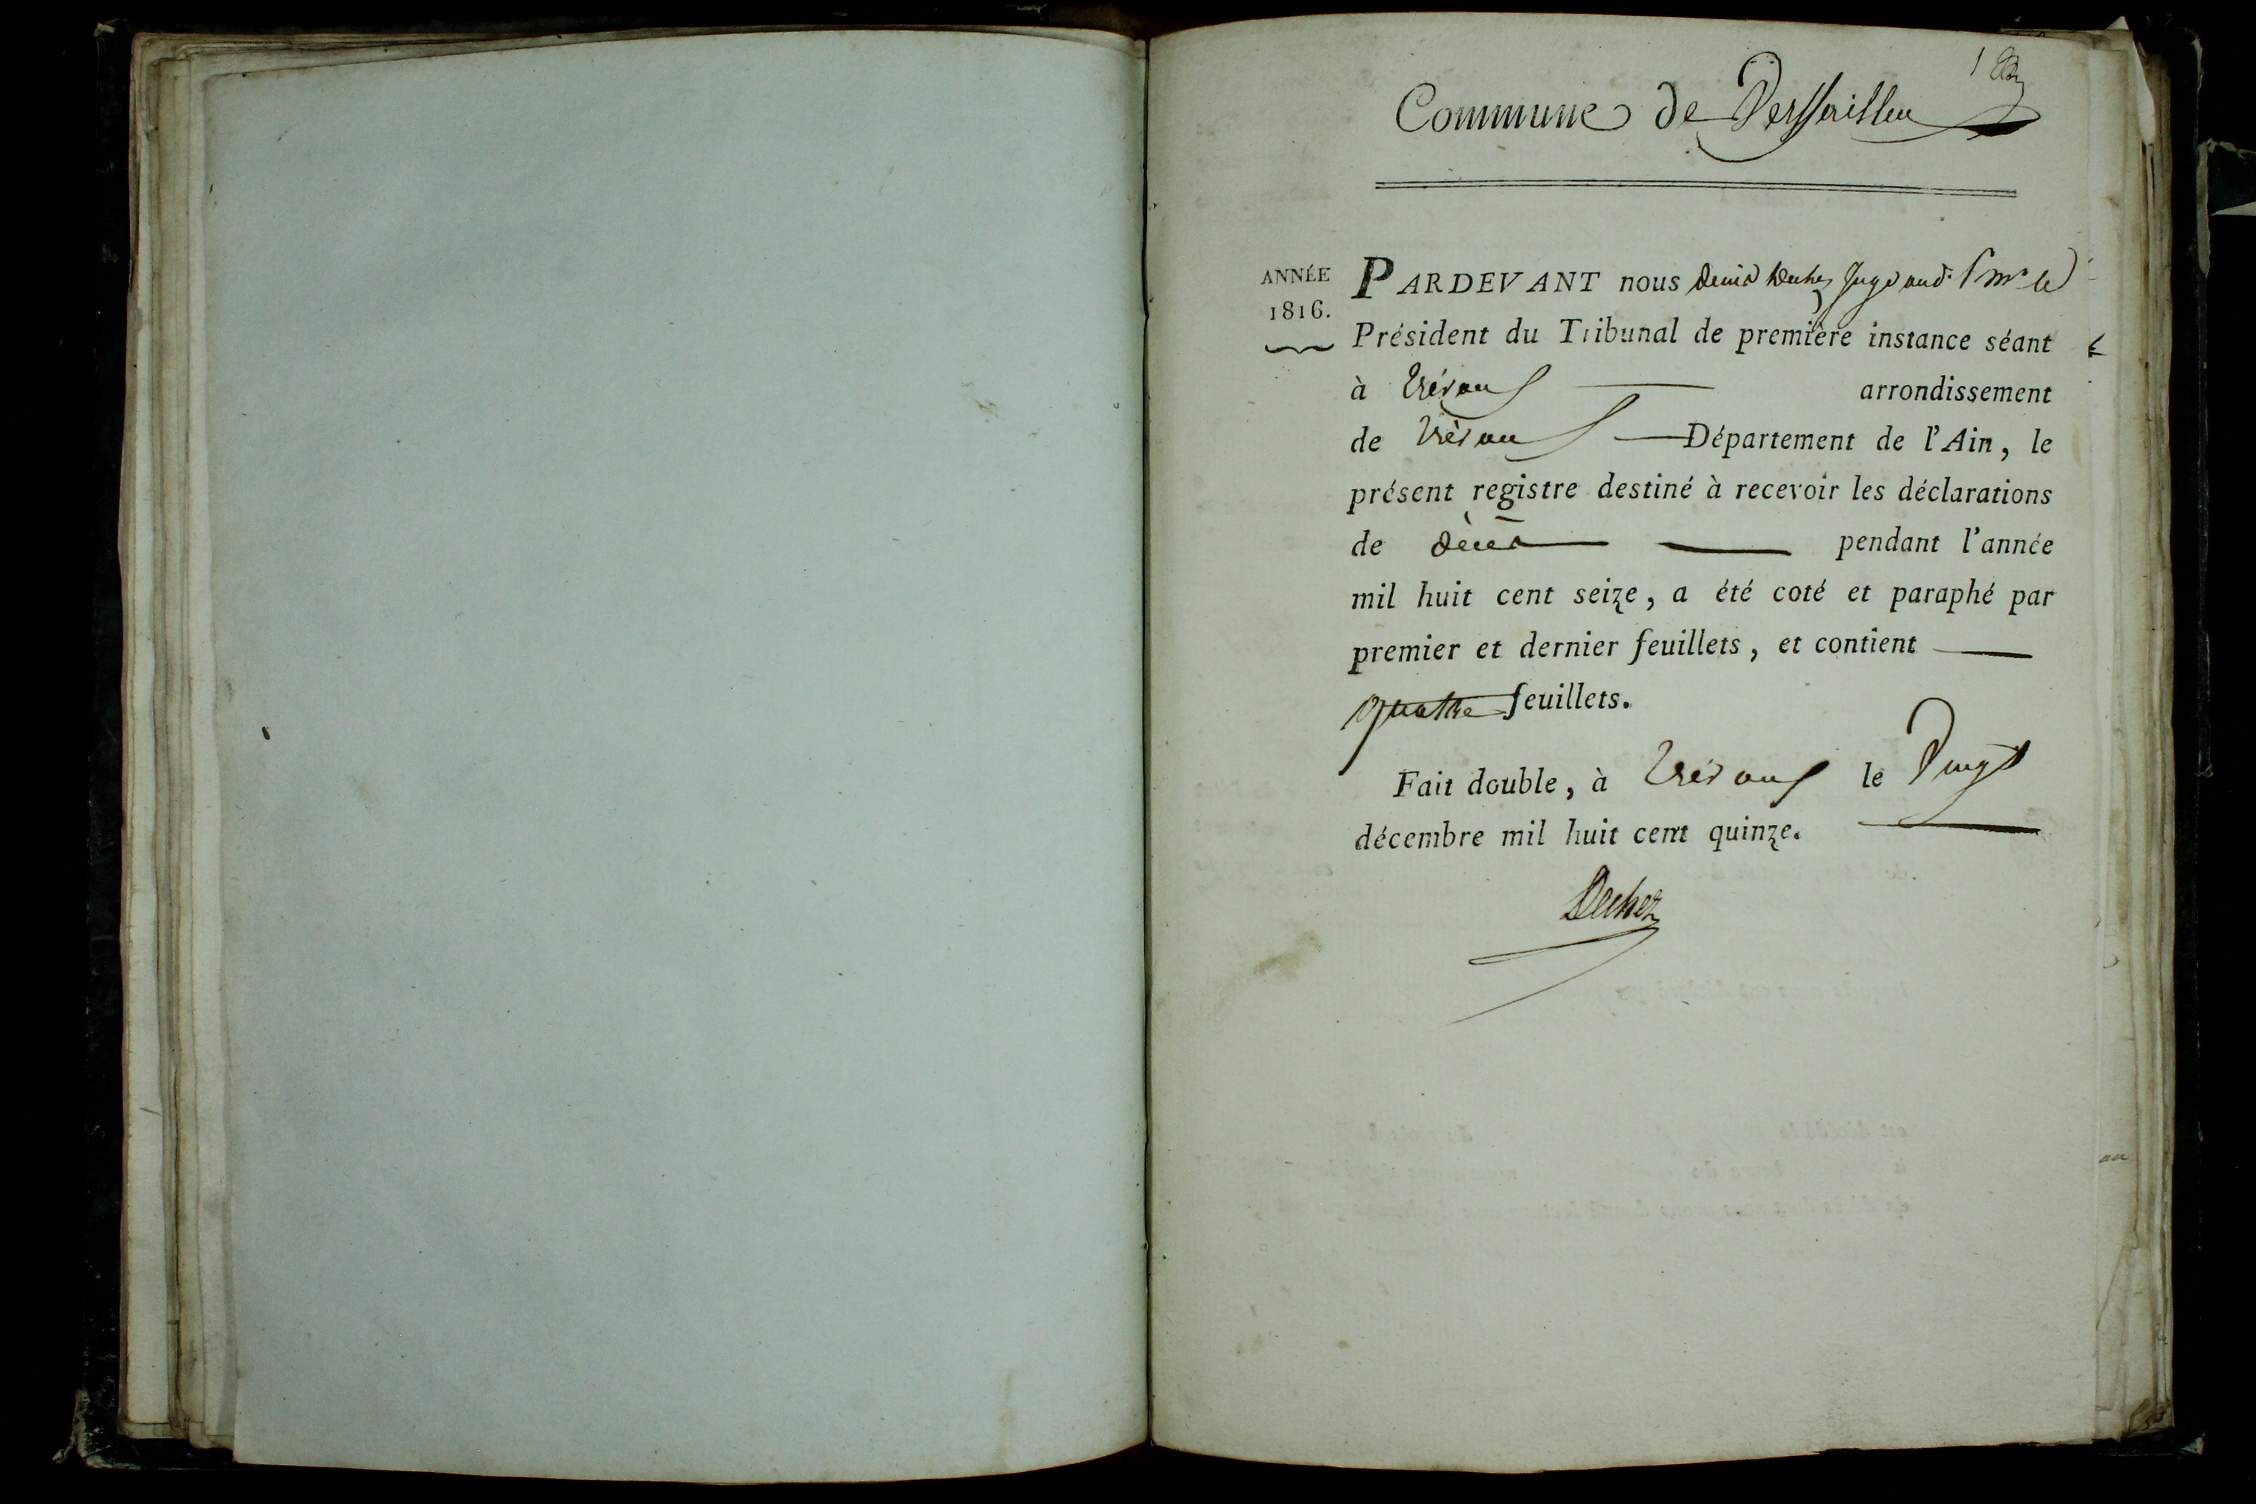 1
Commune de Versailleu
ANNÉE
1816.
PARDEVANT nous denis decher Juge aud. Pr mr le
Président du Tribunal de première instance séant
à Trévoux arrondissement
de Trévoux Département de l'Ain, le
présent registre destiné à recevoir les déclarations
de décès pendant l'année
mil huit cent seize, a été coté et paraphé par
premier et dernier feuillets, et contient
quatre feuillets.
Fait double, à Trévoux le Vingt
décembre mil huit cent quinze.
Decher